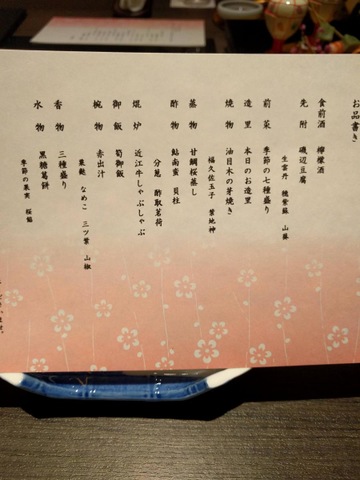 お品書き
食前酒　檸檬酒
先附　磯辺豆腐
生雲丹　穂紫蘇　山葵
前菜　季節の七種盛り
造里　本日のお造里
焼物　油目木の芽焼き
福久佐玉子　葉地神
蒸物　甘鯛桜蒸し
酢物　鮎南蛮　貝柱
分葱　酢取茗荷
焜炉　近江牛しゃぶしゃぶ
御飯　筍御飯
椀物　赤出汁
巣麩　なめこ　三ツ葉　山椒
香物　三種盛り
水物　黒糖葛餅
季節の果実　桜餡
ざいます。